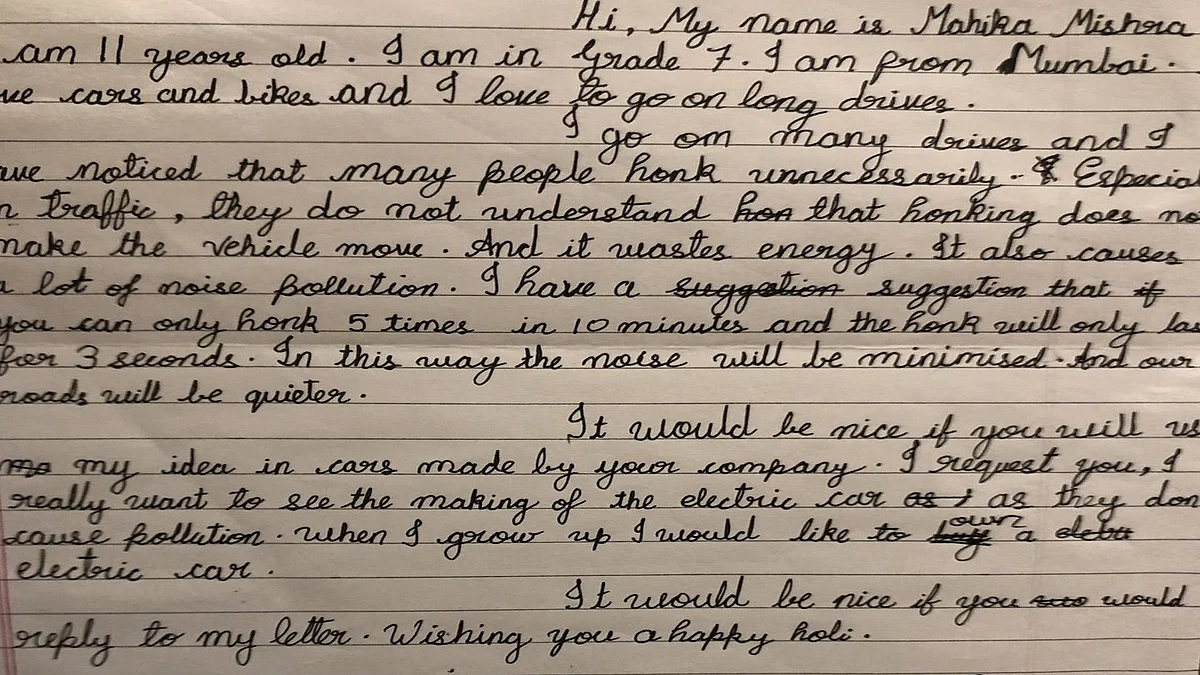 Hi, My name is Mahika Mishra
am 11 years old. I am in Grade 7. I am from Mumbai.
ve cars and bikes and I love to go on long drives.
I go om many drives and I
ave noticed that many people honk unnecessarily. Especial
n traffic, they do not understand hon that honking does no
make the vehicle move. And it wastes energy. It also causes
a lot of noise pollution. I have a suggestion suggestion that if
you can only honk 5 times in 10 minutes and the honk will only las
for 3 seconds. In this way the noise will be minimised. And our
roads will be quieter.
It would be nice if you will us
my idea in cars made by your company. I request you, I
really want to see the making of the electric car as as they don
cause pollution. When I grow up I would like to own a
electric car.
It would be nice if you would
reply to my letter. Wishing you a happy holi.